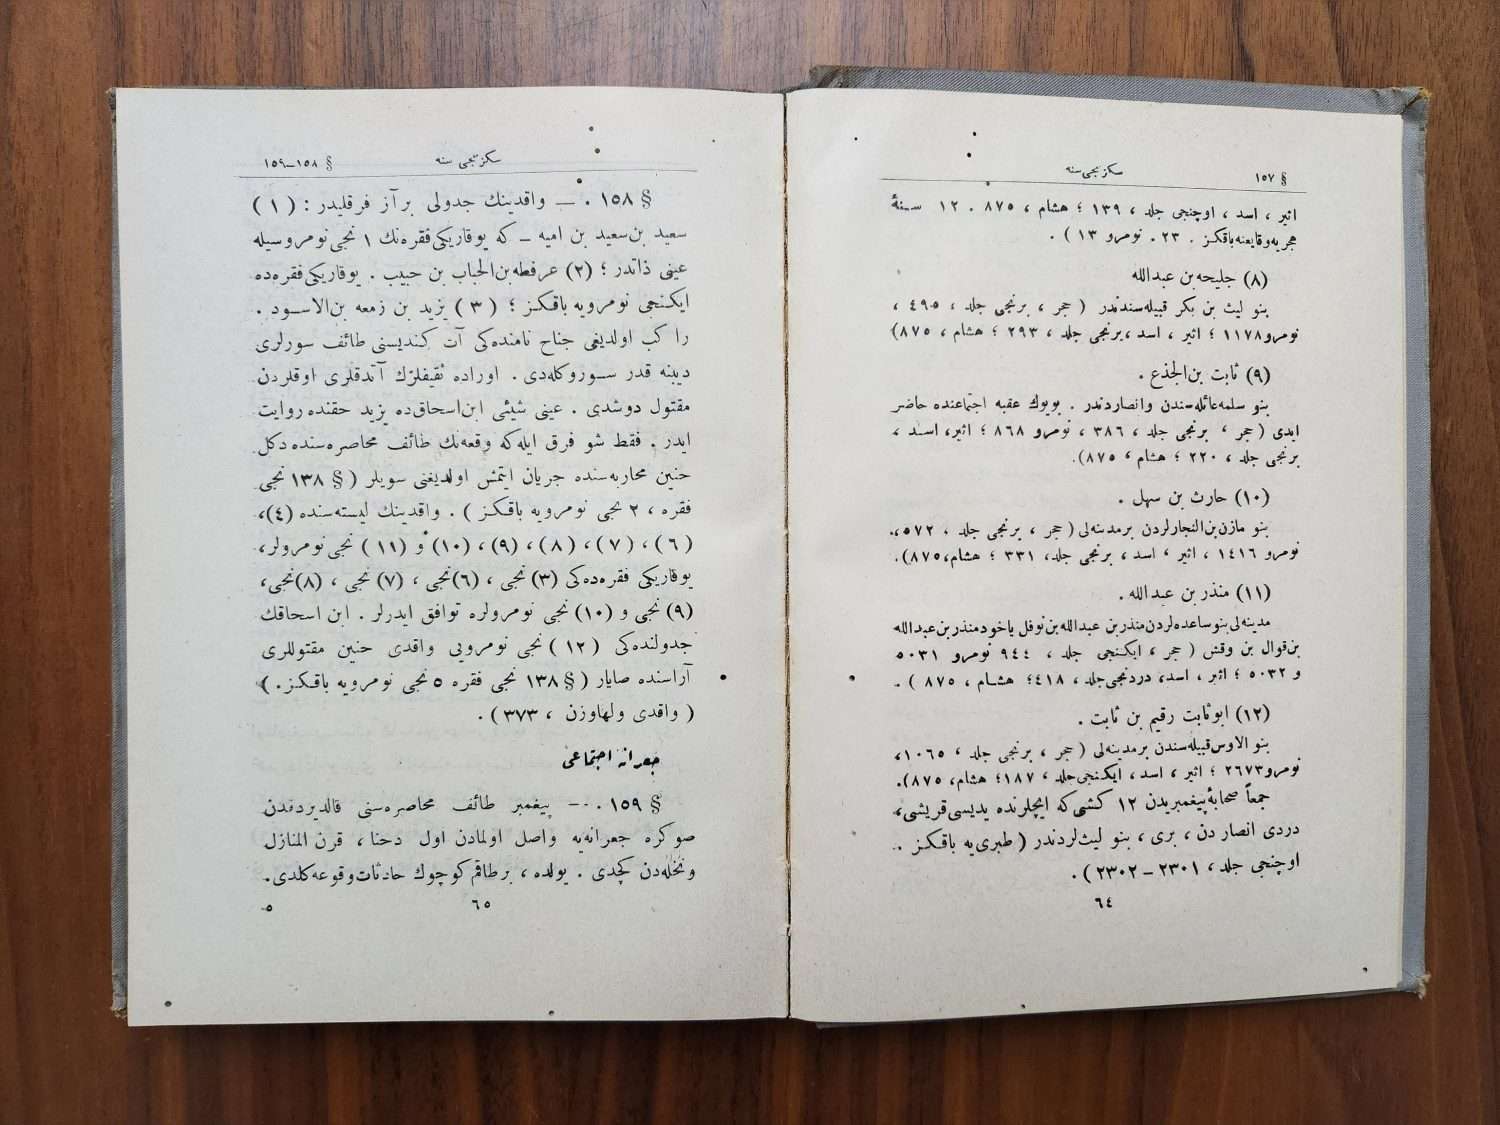 § ١٥٧ سكزنجی سنه
اثیر ، اسد ، اوچنجی جلد ، ١٣٩ ؛ هشام ، ٨٧٥ . ١٢ سـنهٔ
هجریه‌وقایعنه‌باقكز . ٢٣. نومرو ١٣ ) .
(٨) جلیحه‌بن عبدالله
بنو لیث بن بكر قبیله‌سندندر ( حجر ، برنجی جلد ، ٤٩٥ ،
نومرو ١١٧٨ ؛ اثیر ، اسد ،برنجی جلد ، ٢٩٣ ؛ هشام ، ٨٧٥)
(٩) ثابت بن‌الجذع .
بنو سلمه‌عائله‌سندن وانصاردندر . بویوك عقبه اجتماعنده حاضر
ایدی ( حجر ، برنجی جلد ، ٣٨٦ ، نومرو ٨٦٨ ؛ اثیر، اسـد ،
برنجی جلد ، ٢٢٠ ؛ هشام ، ٨٧٥).
(١٠) حارث بن سهل .
بنو مازن‌بن‌النجارلردن برمدینه‌لی ( حجر ، برنجی جلد ، ٥٧٢ ،
نومرو ١٤١٦ ، اثیر ، اسد ، برنجی جلد، ٣٣١ ؛ هشام، ٨٧٥).
(١١) منذر بن عبدالله .
مدینه‌لی‌بنوساعده‌لردن‌منذربن عبدالله‌بن‌نوفل یاخودمنذربن‌عبدالله
بن‌قوال بن وقش ( حجر ، ایكنجی جلد ، ٩٤٤ نومرو ٥٠٣١
و ٥٠٣٢ ؛ اثیر ، اسد، دردنجی‌جلد ، ٤١٨؛ هشـام ، ٨٧٥ ) .
(١٢) ابوثابت رقیم بن ثابت .
بنو الاوس‌قبیله‌سندن برمدینه‌لی ( حجر ، برنجی جلد ، ١٠٦٥ ،
نومرو٢٦٧٣ ؛ اثیر ، اسد ، ایكنجی‌جلد ، ١٨٧؛ هشام، ٨٧٥).
جمعاً صحابهٔ پیغمبریدن ١٢ كشی‌كه ایچلرنده یدیسی‌قریشی،
دردی انصار دن ، بری ، بنو لیث‌لردندر ( طبری‌یه باقكز .
اوچنجی جلد ، ٢٣٠١ – ٢٣٠٢ ) .
٦٤
سكزنجی سنه § ١٥٨–١٥٩
§ ١٥٨ . — واقدینك جدولی برآز فرقلیدر : ( ١ )
سعید بن‌سعید بن امیه – كه یوقاریكی‌فقره‌نك ١ نجی‌نومروسیله
عینی ذاتدر ؛ (٢) عرفطه‌بن‌الحباب بن حبیب . یوقاریكی‌فقره‌ده
ایكنجی نومرویه باقكز ؛ ( ٣ ) یزید بن زمعه بن‌الاسـود .
راكب اولدیغی جناح نامنده‌كی آت كندیسنی طائف سورلری
دیبنه قدر سـوروكله‌دی . اوراده ثقیفلرك آتدقلری اوقلردن
مقتول دوشدی . عینی شیئی ابن‌اسحاق‌ده یزید حقنده روایت
ایدر . فقط شو فرق ایله‌كه وقعه‌نك طائف محاصره‌سنده دكل
حنین محاربه‌سنده جریان ایتمش اولدیغنی سویلر ( § ١٣٨ نجی
فقره ، ٢ نجی نومرویه باقكز ) . واقدینك لیسته‌سنده (٤)،
( ٦ ) ، ( ٧ ) ، ( ٨ ) ، (٩) ، (١٠) و ( ١١ ) نجی‌نومرولر،
یوقاریكی فقره‌ده‌كی (٣) نجی ، (٦)نجی ، (٧) نجی ، (٨)نجی،
(٩) نجی و (١٠) نجی نومرولره توافق ایدرلر . ابن اسحاقك
جدولنده‌كی ( ١٢ ) نجی نومرویی واقدی حنین مقتوللری
آراسنده صایار ( § ١٣٨ نجی فقره ٥ نجی نومرویه باقكز . )
( واقدی ولهاوزن ، ٣٧٣ ) .
جعرانه اجتماعی
§ ١٥٩ . — پیغمبر طائف محاصره‌سنی قالدیردقدن
صوكره جعرانه‌یه واصل اولمادن اول دحنا ، قرن المنازل
ونخله‌دن كچدی . یولده ، برطاقم‌كوچوك حادثات‌وقوعه‌كلدی.
٦٥ ٥